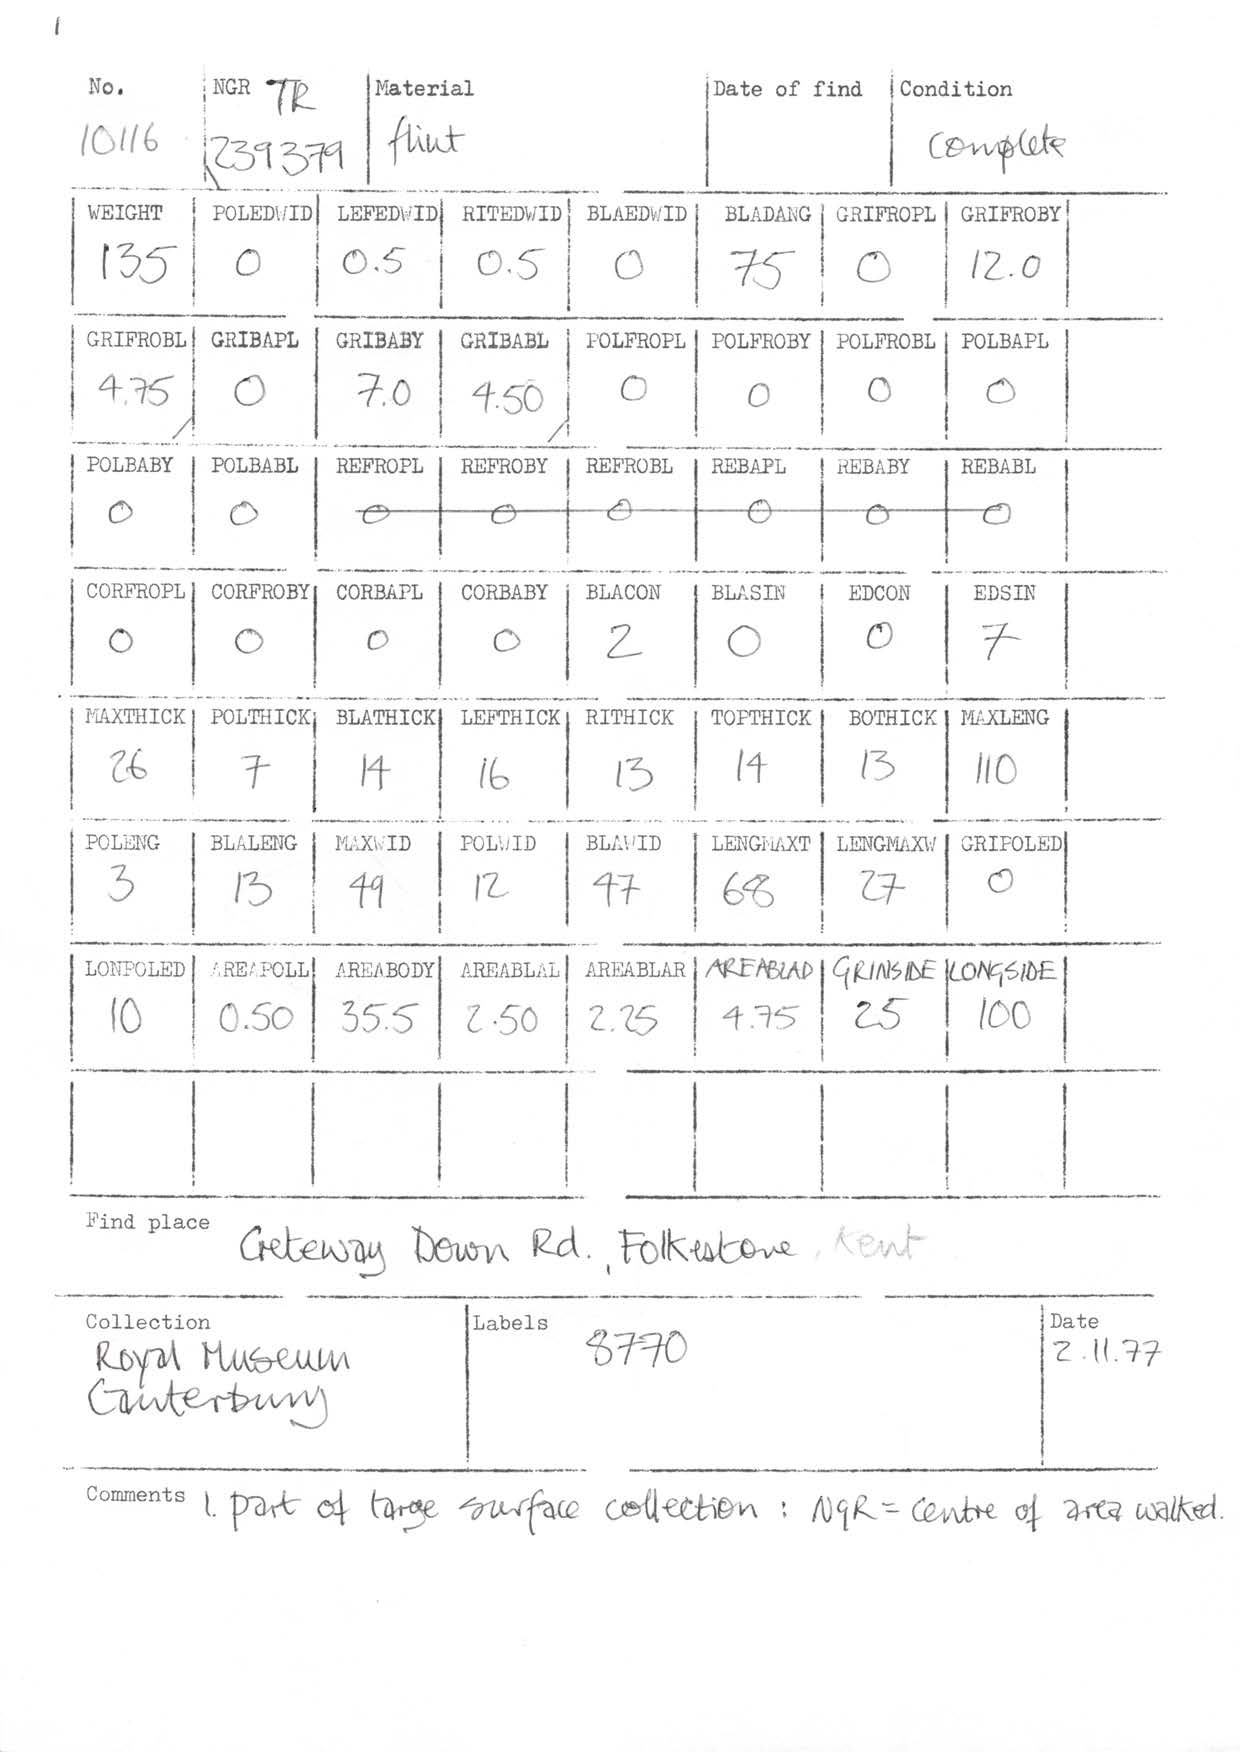 1
No. NGR TR Material Date of find Condition
10116 239379 flint complete
WEIGHT POLEDWID LEFEDWID RITEDWID BLAEDWID BLADANG GRIFROPL GRIFROBY
135 0 0.5 0.5 0 75 0 12.0
GRIFROBL GRIBAPL GRIBABY GRIBABL POLFROPL POLFROBY POLFROBL POLBAPL
4.75 0 7.0 4.50 0 0 0 0
POLBABY POLBABL REFROPL REFROBY REFROBL REBAPL REBABY REBABL
0 0 0 0 0 0 0 0
CORFROPL CORFROBY CORBAPL CORBABY BLACON BLASIN EDCON EDSIN
0 0 0 0 2 0 0 7
MAXTHICK POLTHICK BLATHICK LEFTHICK RITHICK TOPTHICK BOTHICK MAXLENG
26 7 14 16 13 14 13 110
POLENG BLALENG MAXWID POLWID BLAWID LENGMAXT LENGMAXW GRIPOLED
3 13 49 12 47 68 27 0
LONPOLED AREAPOLL AREABODY AREABLAL AREABLAR AREABLAD GRINSIDE LONGSIDE
10 0.50 35.5 2.50 2.25 4.75 25 100
Find place Creteway Down Rd., Folkestone, Kent
Collection Labels Date
Royal Museum 8770 2.11.77
Canterbury
Comments 1. part of large surface collection : NGR = centre of area walked.